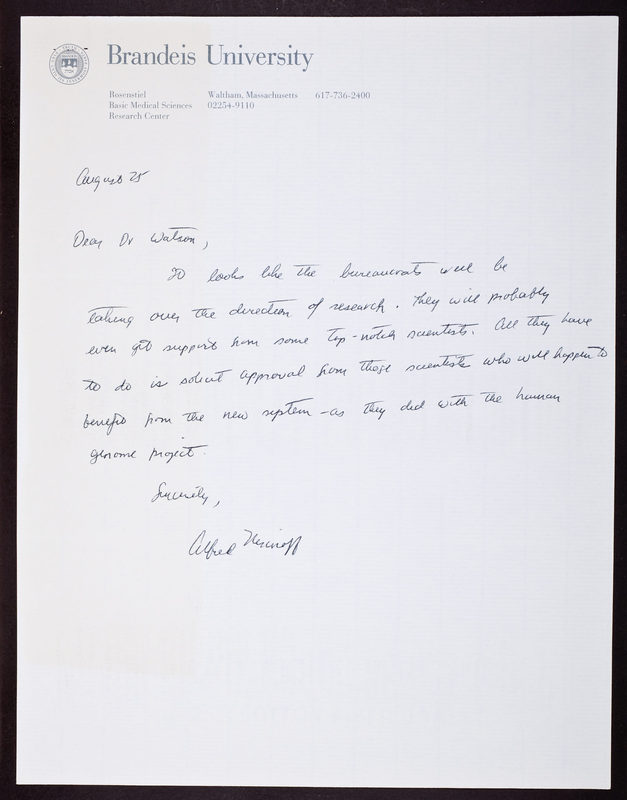 Brandeis University
Rosenstiel
Basic Medical Sciences
Research Center
Waltham, Massachusetts
02254-9110
617-736-2400
August 25
Dear Dr Watson,
It looks like the bureaucrats will be
taking over the direction of research. They will probably
even get support from some top-notch scientists. All they have
to do is solicit approval from those scientists who will happen to
benefit from the new system - as they did with the human
genome project.
Sincerely,
Alfred Nisonoff